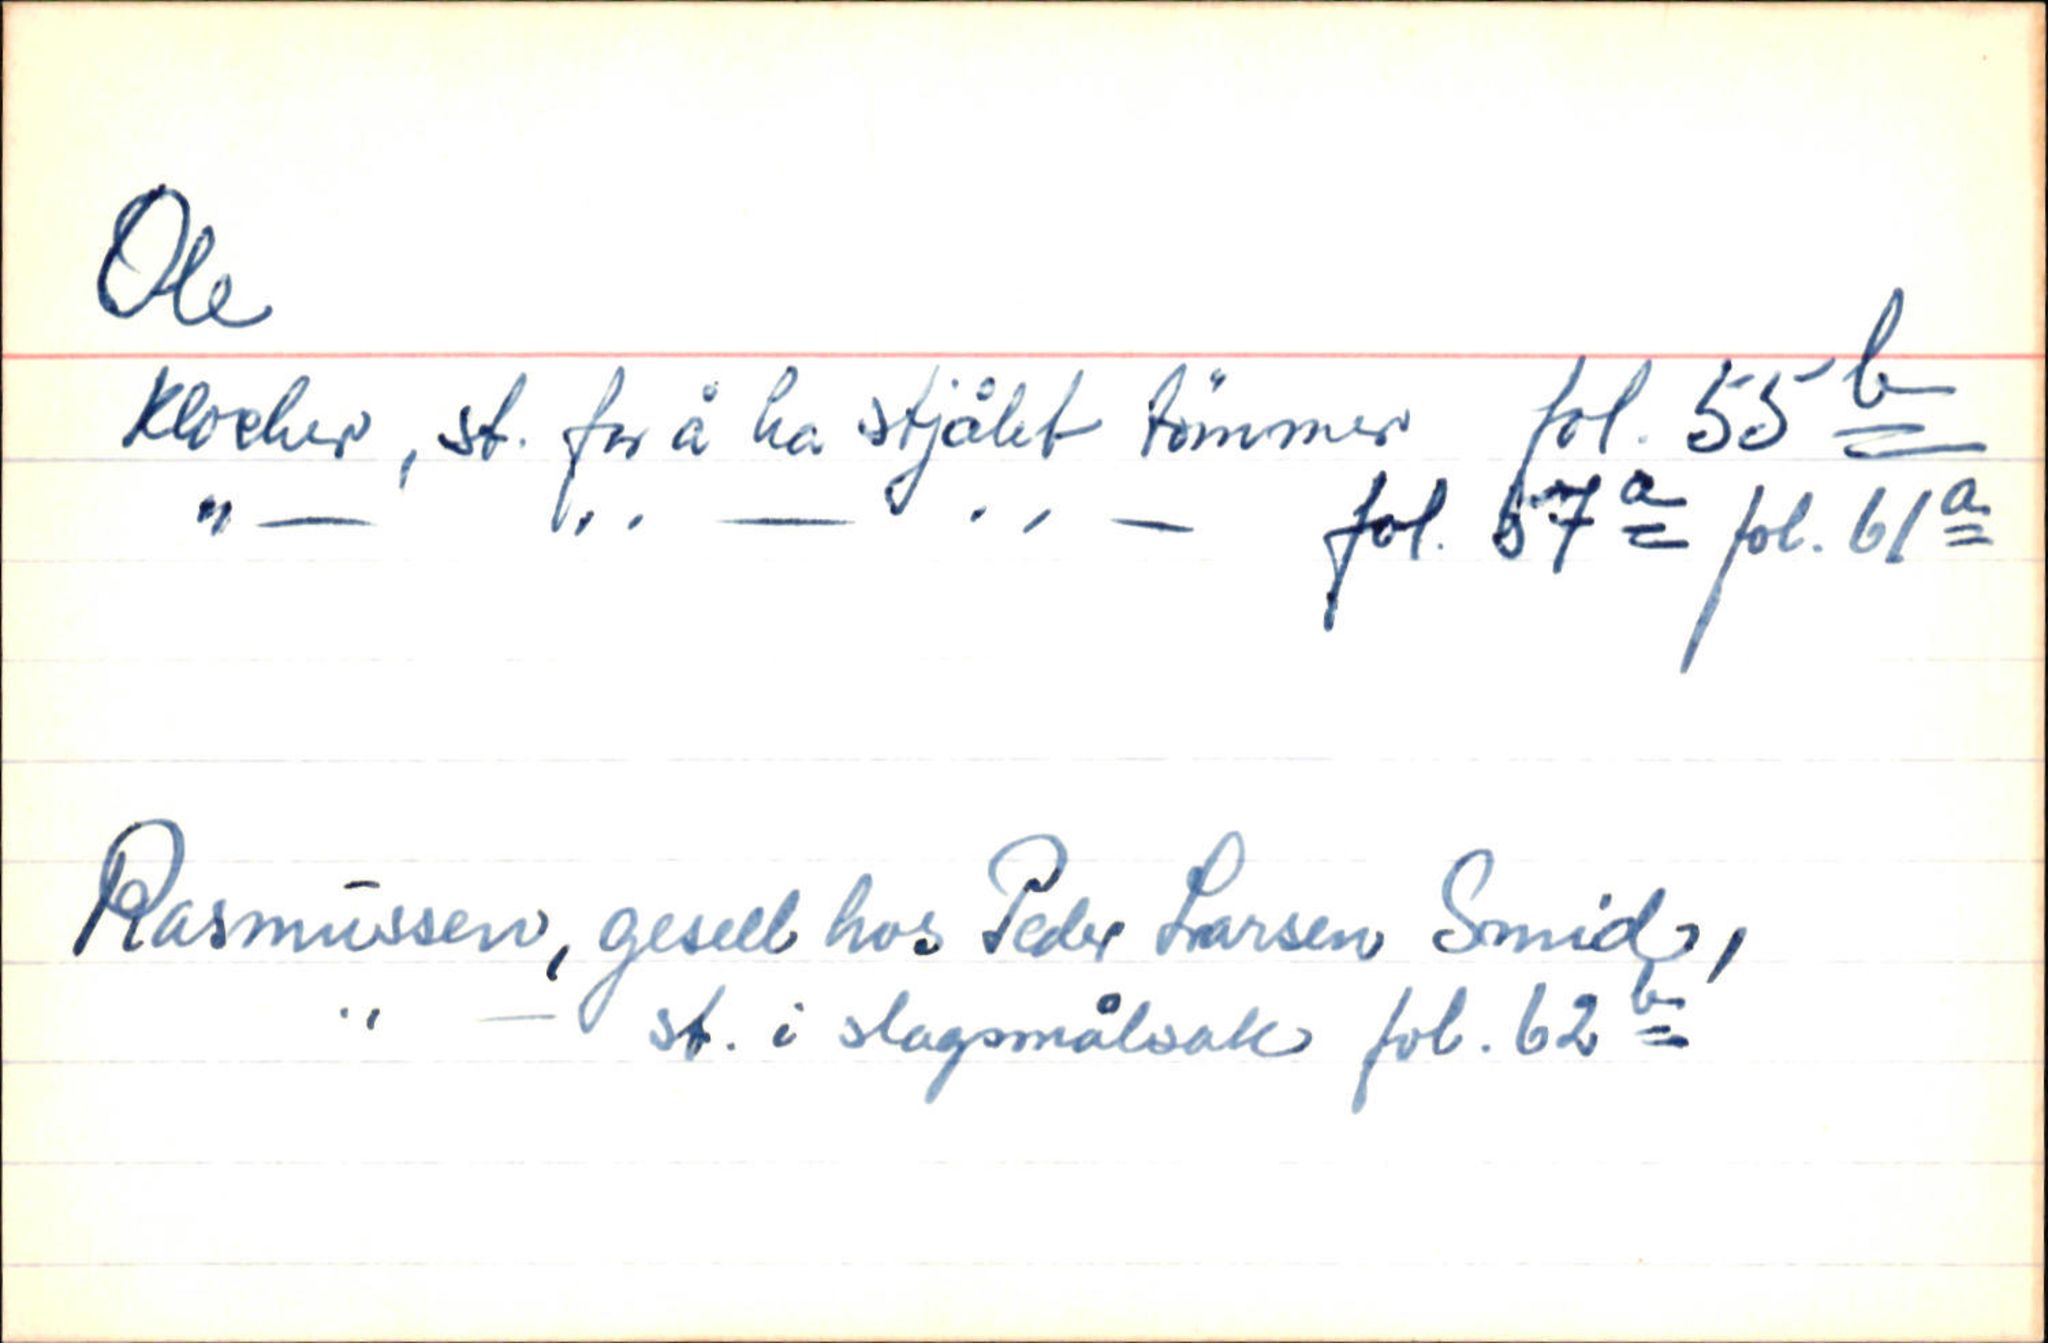 Ole
Klocker, st. for å ha stjålet tömmer fol. 55 b
" — " — " — fol. 57 a fol. 61 a
Rasmussen, gesell hos Peder Larsen Smid,
" — st. i slagsmålsak fol. 62 b